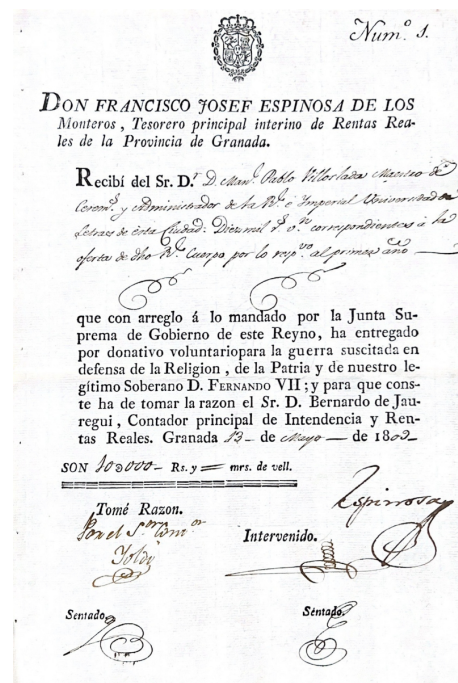 Num.º 1.
DON FRANCISCO JOSEF ESPINOSA DE LOS
Monteros, Tesorero principal interino de Rentas Rea-
les de la Provincia de Granada.
Recibí del Sr. D.r D. Man.l Pablo Villoslada Maestro de
Cerem.s y Administrador de la R.l é Imperial Universidad de
Letras de esta Ciudad: Diez mil r.s v.n correspondientes á la
oferta de dho R.l Cuerpo por lo resp.vo al primer año
que con arreglo á lo mandado por la Junta Su-
prema de Gobierno de este Reyno, ha entregado
por donativo voluntariopara la guerra suscitada en
defensa de la Religion, de la Patria y de nuestro le-
gítimo Soberano D. FERNANDO VII; y para que cons-
te ha de tomar la razon el Sr. D. Bernardo de Jau-
regui, Contador principal de Intendencia y Ren-
tas Reales. Granada 13 de Mayo de 1809
SON 10000 Rs. y = mrs. de vell.
Espinosa
Tomé Razon.
Por el S.or Con.or
Intervenido.
Sentado.
Sentado.